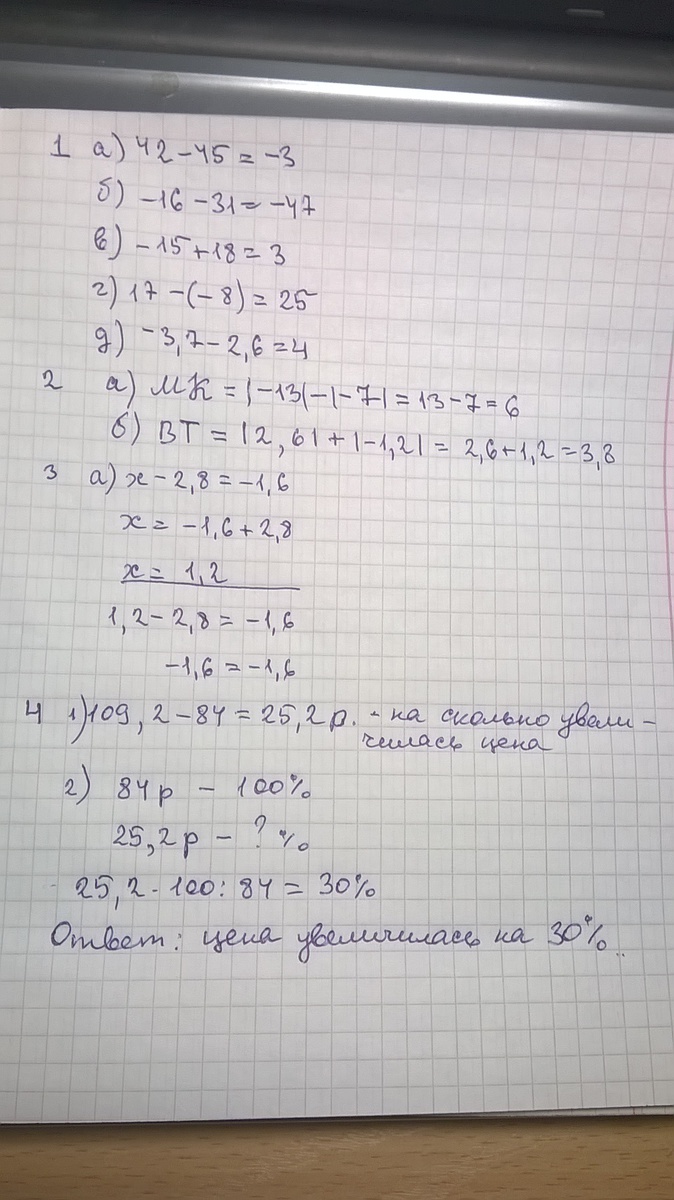 1 а) 42 - 45 = -3
б) -16 - 31 = -47
в) -15 + 18 = 3
г) 17 - (-8) = 25
д) -3,7 - 2,6 = 4
2 а) МК = |-13| - |-7| = 13 - 7 = 6
б) ВТ = |2,6| + |-1,2| = 2,6 + 1,2 = 3,8
3 а) x - 2,8 = -1,6
x = -1,6 + 2,8
x = 1,2
1,2 - 2,8 = -1,6
-1,6 = -1,6
4 1) 109,2 - 84 = 25,2 р. - на сколько увели-
чилась цена
2) 84 р - 100%
25,2 р - ? %
25,2 · 100 : 84 = 30%
Ответ: цена увеличилась на 30%.